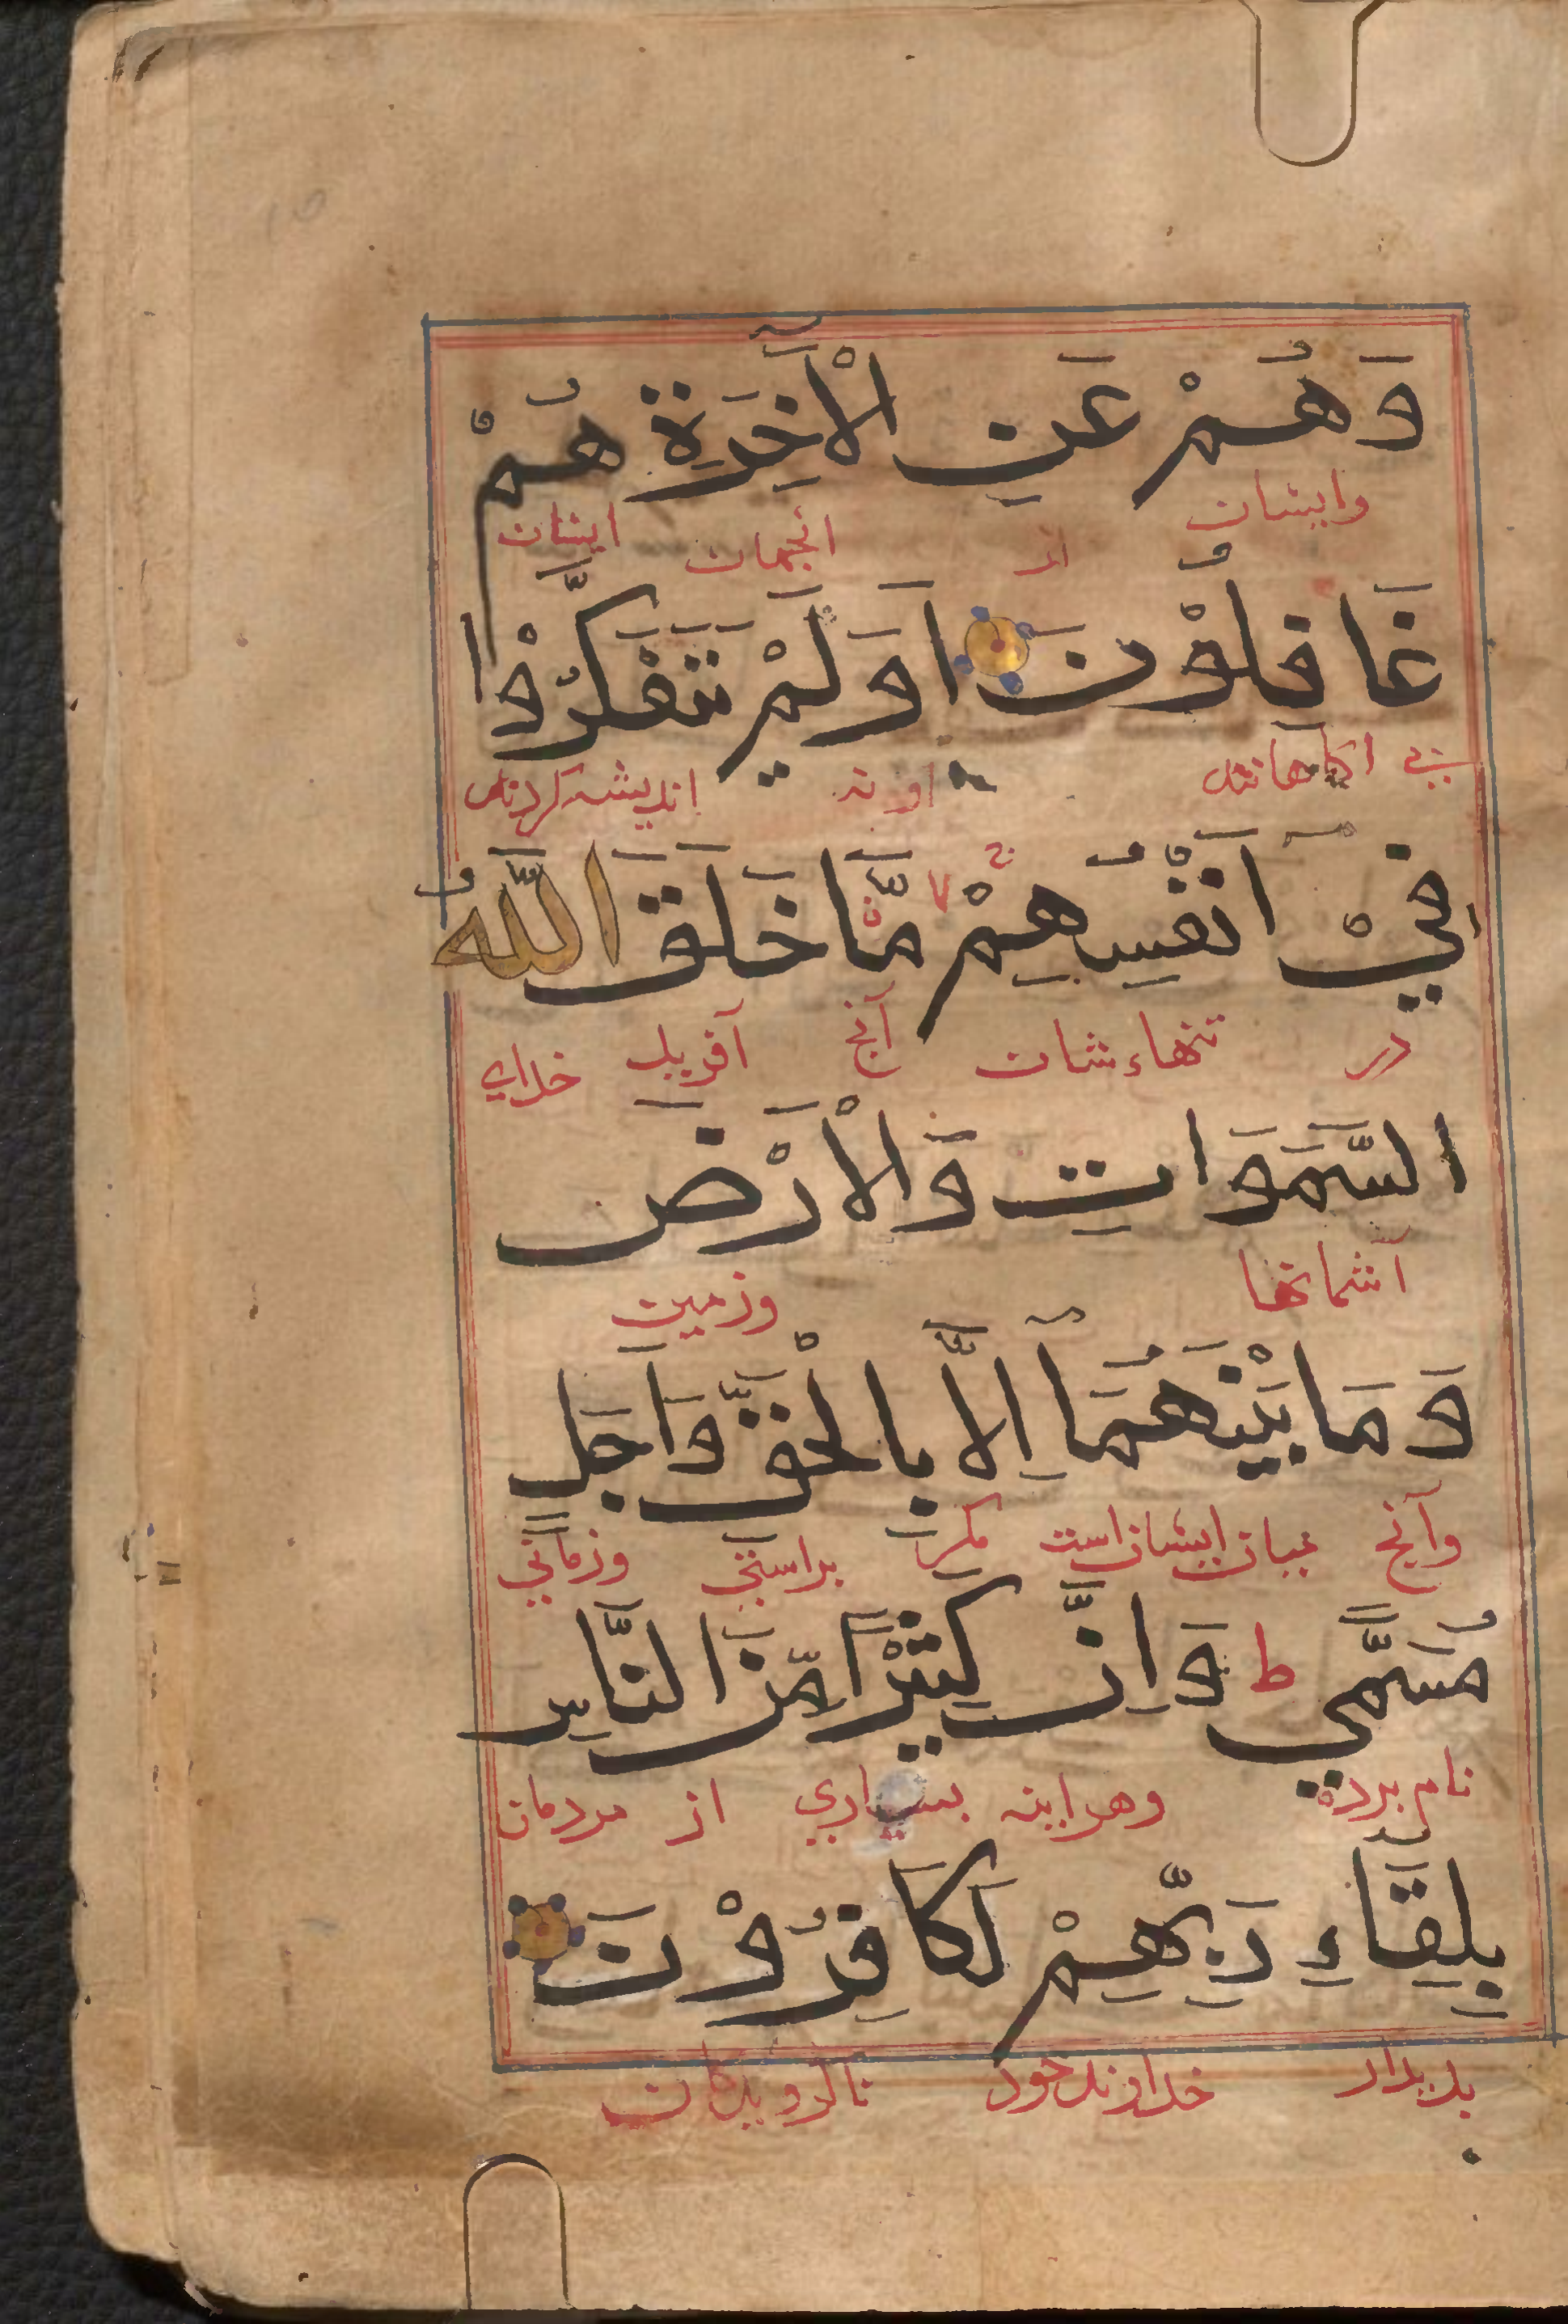 وَهُمْ عَنِ الْآخِرَةِ هُمْ
وایشان از انجهان ایشان
غَافِلُوْنَ اَوَلَمْ يَتَفَكَّرُوْا
بی اکاهانند او نه اندیشه کردند
فِيْ اَنْفُسِهِمْ مَّا خَلَقَ اللّٰهُ
در تنهاء شان آنج آفرید خدای
السَّمَوَاتِ وَالْاَرْضَ
آسمانها وزمین
وَمَا بَيْنَهُمَا اِلَّا بِالْحَقِّ وَاَجَلٍ
وآنج میان ایشان است مکر براستی وزمانی
مُسَمًّي ط وَاِنَّ كَثِيْرًا مِّنَ النَّاسِ
نام برده وهراینه بسیاری از مردمان
بِلِقَآءِ رَبِّهِمْ لَكَافِرُوْنَ
بدیدار خداوند خود ناکرویدکان